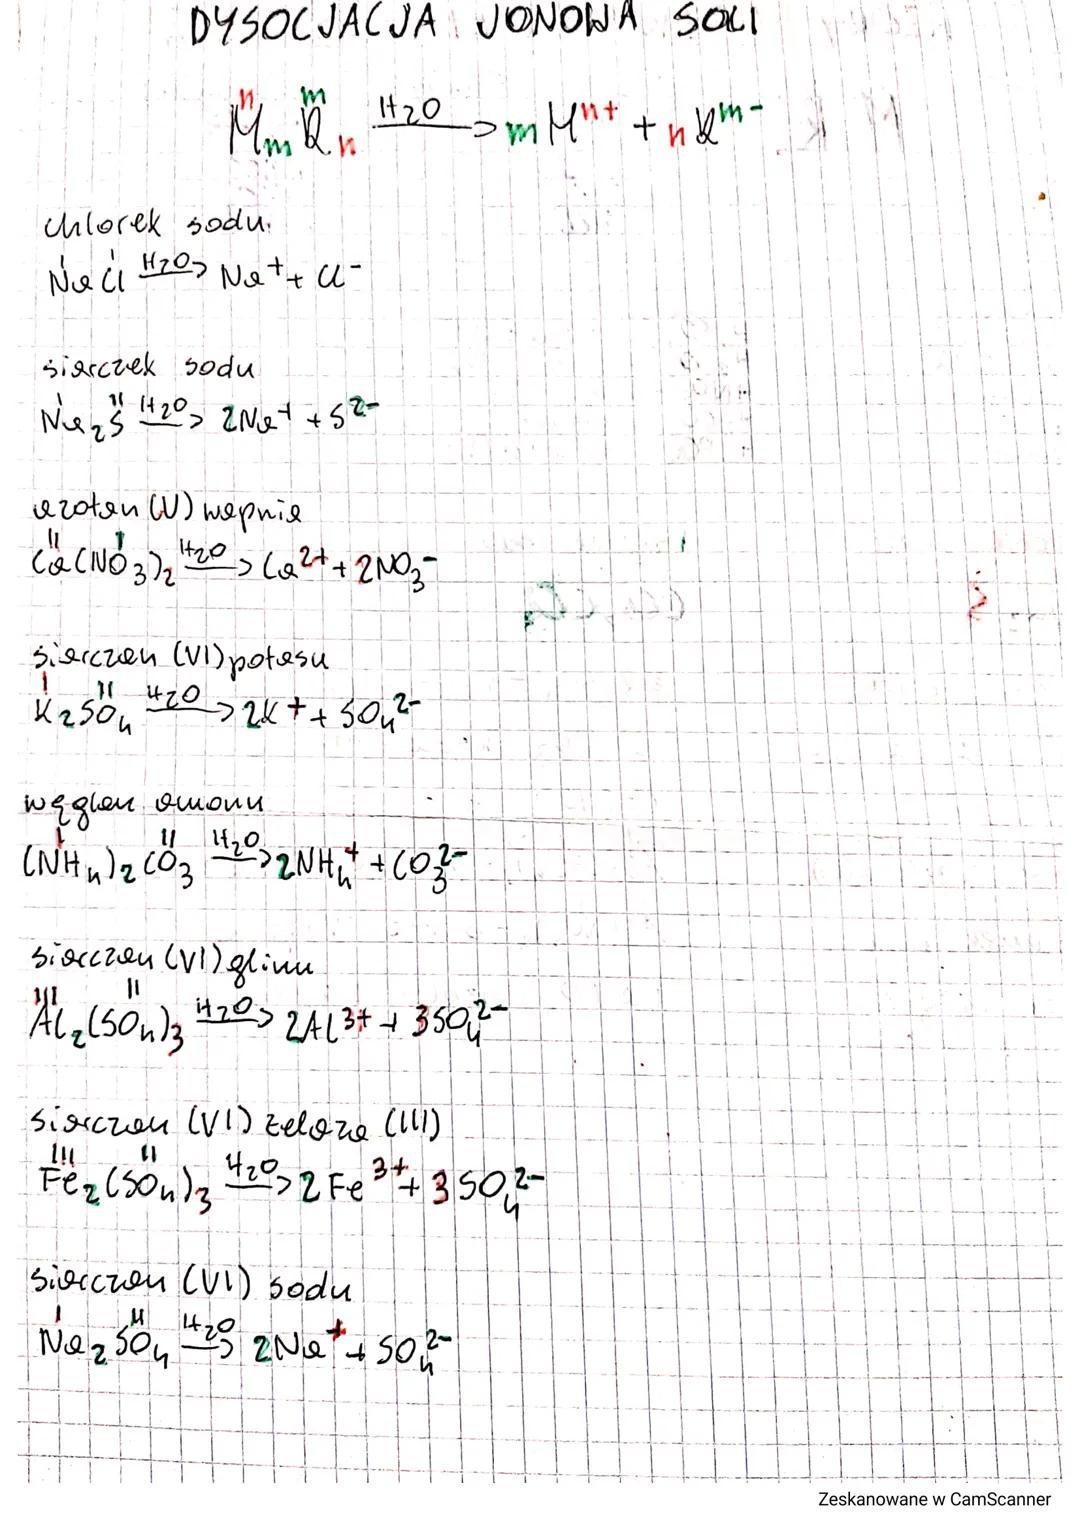 DYSOCJACJA JONOWA SOLI
n m
MmRn H2O → mMⁿ⁺ + nRᵐ⁻
chlorek sodu
I I
NaCl H2O → Na⁺ + Cl⁻
siarczek sodu
I II
Na₂S H2O → 2Na⁺ + S²⁻
azotan (V) wapnia
II I
Ca(NO₃)₂ H2O → Ca²⁺ + 2NO₃⁻
siarczan (VI) potasu
I II
K₂SO₄ H2O → 2K⁺ + SO₄²⁻
węglan amonu
I II
(NH₄)₂CO₃ H2O → 2NH₄⁺ + CO₃²⁻
siarczan (VI) glinu
III II
Al₂(SO₄)₃ H2O → 2Al³⁺ + 3SO₄²⁻
siarczan (VI) żelaza (III)
III II
Fe₂(SO₄)₃ H2O → 2Fe³⁺ + 3SO₄²⁻
siarczan (VI) sodu
I II
Na₂SO₄ H2O → 2Na⁺ + SO₄²⁻
Zeskanowane w CamScanner